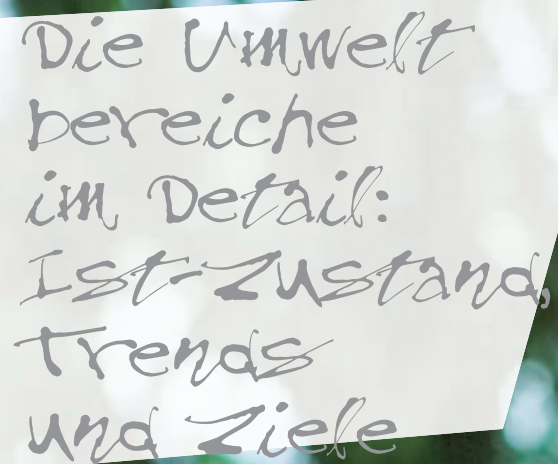 Die Umwelt
bereiche
im Detail:
Ist-Zustand,
Trends
und Ziele